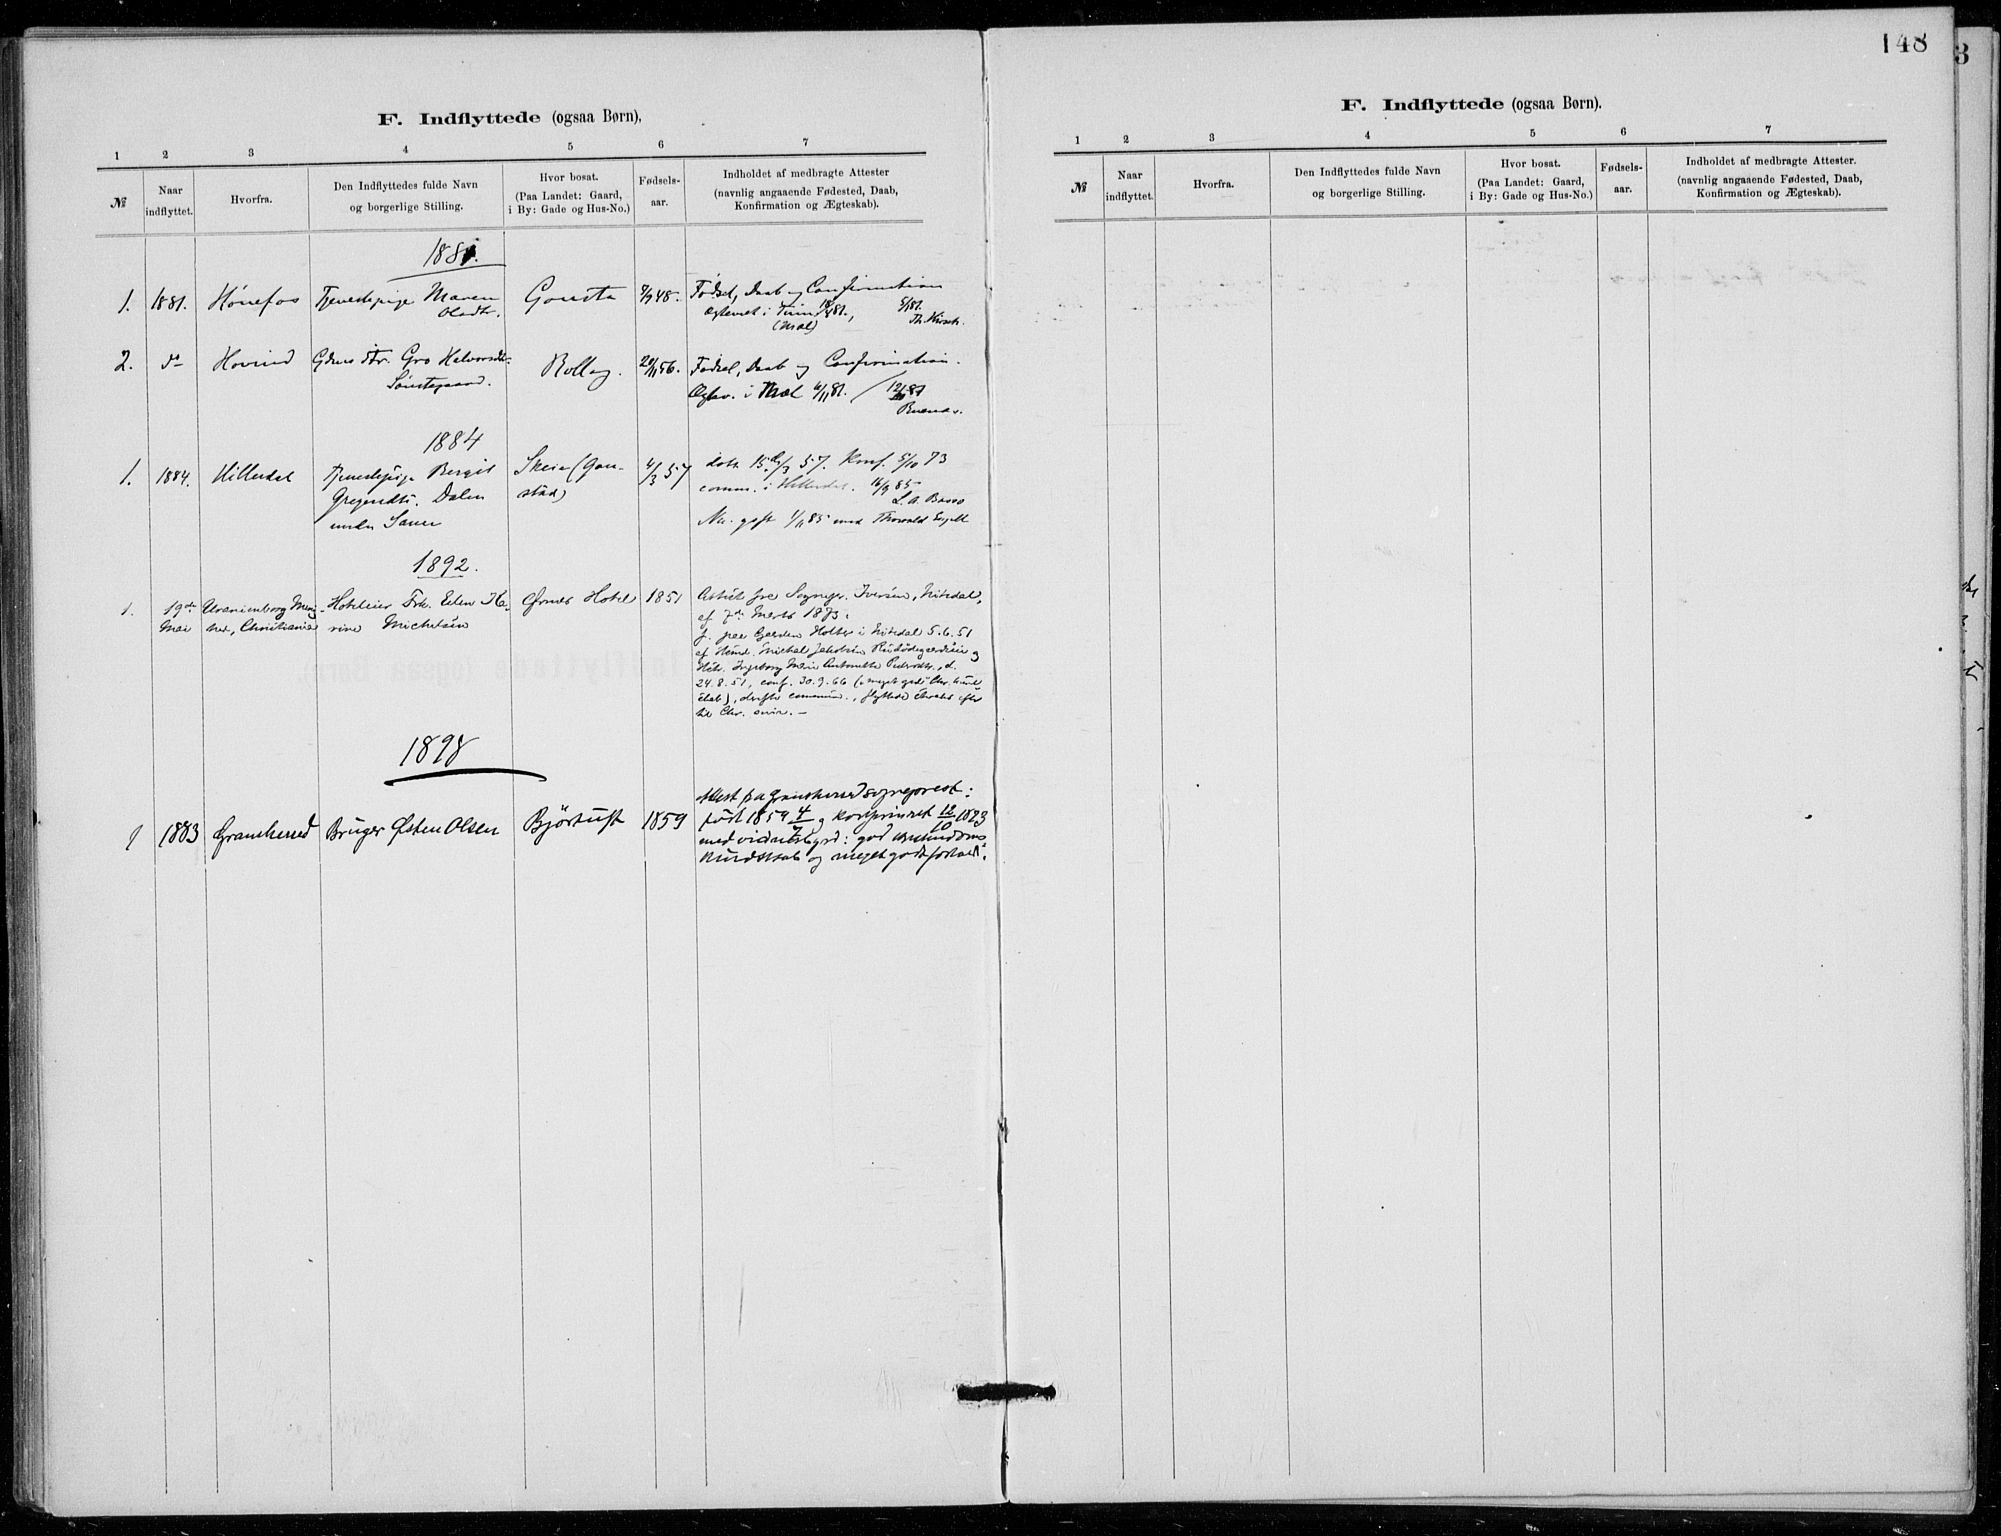 148
3
F. Indflyttede (ogsaa Børn),
1 2 3 4 5 6 7
№
Naar indflyttet.
Hvorfra.
Den Indflyttedes fulde Navn og borgerlige Stilling.
Hvor bosat. (Paa Landet: Gaard, i By: Gade og Hus-No.)
Fødsels-aar.
Indholdet af medbragte Attester (navnlig angaaende Fødested, Daab, Konfirmation og Ægteskab).
1881.
1. 1881. Hønefos Tjenestepige Maren Gousta 48. Fødsel, Daab og Confirmation
Olsdtr. i Tinn 81,
(Mæl)
2. do Hovind Gro Halvorsdtr. Rollag. 56. Fødsel, Daab og Confirmation.
i Mæl 6/11 81.
1884
1. 1884. Hitterdal Tjenestepige Bergit Skeie (Gau- 4/3 57 døbt 15de/3 57. Konf. 5/10 73
Dalen stad) comm. i Hitterdal. 16/9 85
under
Nu gift 1/11 85 med Thorvald
1892.
1. 19de Uranienborg Menig- Hoteleier Frk. Ka- Ørnes Hotel 1851 Attest fra Sognepr. Iversen, Nitedal,
Mai hed, Christiania rine Michelsen af 7de Marts 1873:
f. paa Gaarden Holter i Nitedal 5.6.51
af Michal Jakobsen og
Ingeborg Marie Antonette d.
24.8.51, conf. 30.9.66 (meget god Chr. kund-
skab), derefter commun., flyttede
til Chr.
1898
1 1883 Gransherred Bruger Østen Olsen Bjørtuft 1859 Attest fra Gransherred sogneprest:
født 1859 4/7 og konfirmeret 12/10 1873
med vidnesbyrd: god kristendoms
kundskab og meget god forhold.
F. Indflyttede (ogsaa Børn).
1 2 3 4 5 6 7
№
Naar indflyttet.
Hvorfra.
Den Indflyttedes fulde Navn og borgerlige Stilling.
Hvor bosat. (Paa Landet: Gaard, i By: Gade og Hus-No.)
Fødsels-aar.
Indholdet af medbragte Attester. (navnlig angaaende Fødested, Daab, Konfirmation og Ægteskab).